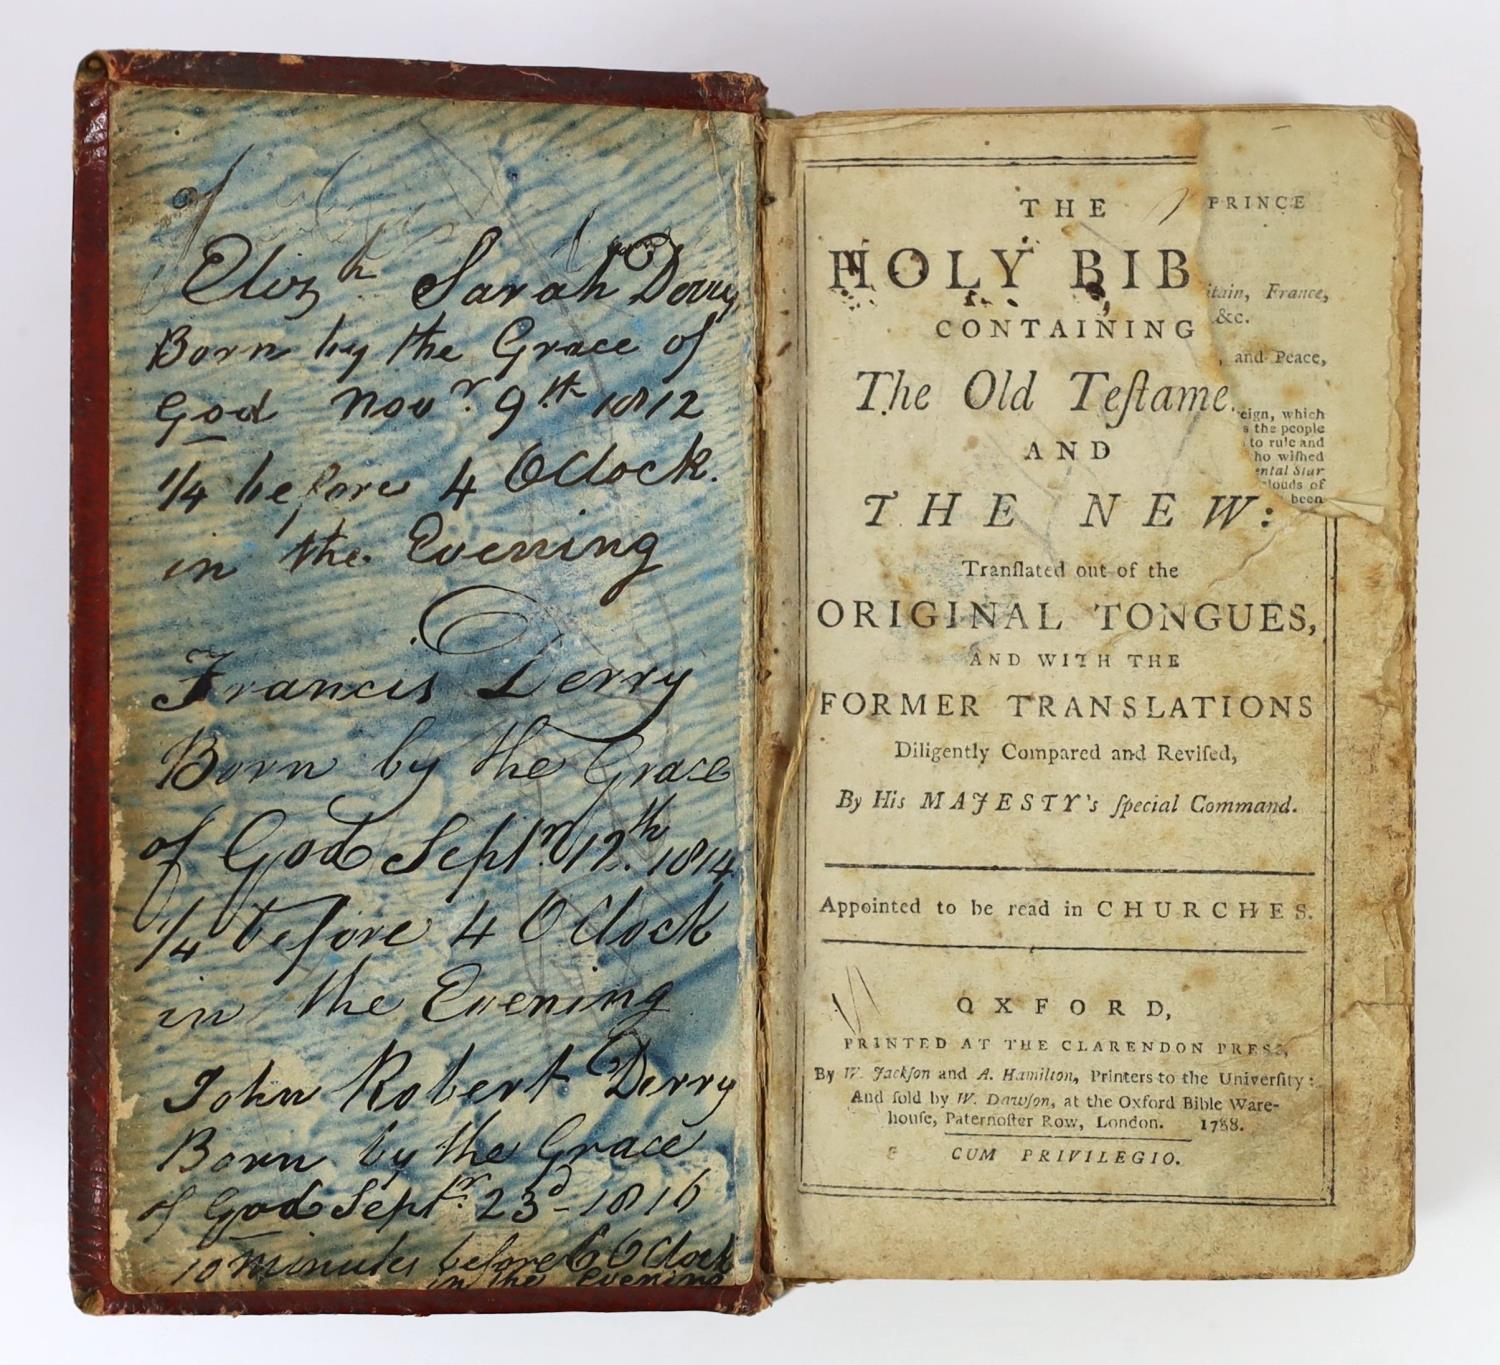 Elizh Sarah Derry
Born by the Grace of
God Novr. 9th 1812
1/4 before 4 OClock.
in the Evening
Francis Derry
Born by the Grace
of God Septr. 12th. 1814
1/4 before 4 OClock
in the Evening
John Robert Derry
Born by the Grace
of God Septr. 23d - 1816
10 Minutes before 6 OClock
in the Evening
THE
HOLY BIB
CONTAINING
The Old Teſtame
AND
THE NEW:
Tranſlated out of the
ORIGINAL TONGUES,
AND WITH THE
FORMER TRANSLATIONS
Diligently Compared and Reviſed,
By His MAJESTY's ſpecial Command.
Appointed to be read in CHURCHES.
OXFORD,
PRINTED AT THE CLARENDON PRESS,
By W. Jackſon and A. Hamilton, Printers to the Univerſity:
And ſold by W. Dawſon, at the Oxford Bible Ware-
houſe, Paternoſter Row, London. 1788.
CUM PRIVILEGIO.
PRINCE
itain, France,
&c.
, and Peace,
eign, which
s the people
to rule and
ho wiſhed
ental Star
clouds of
been